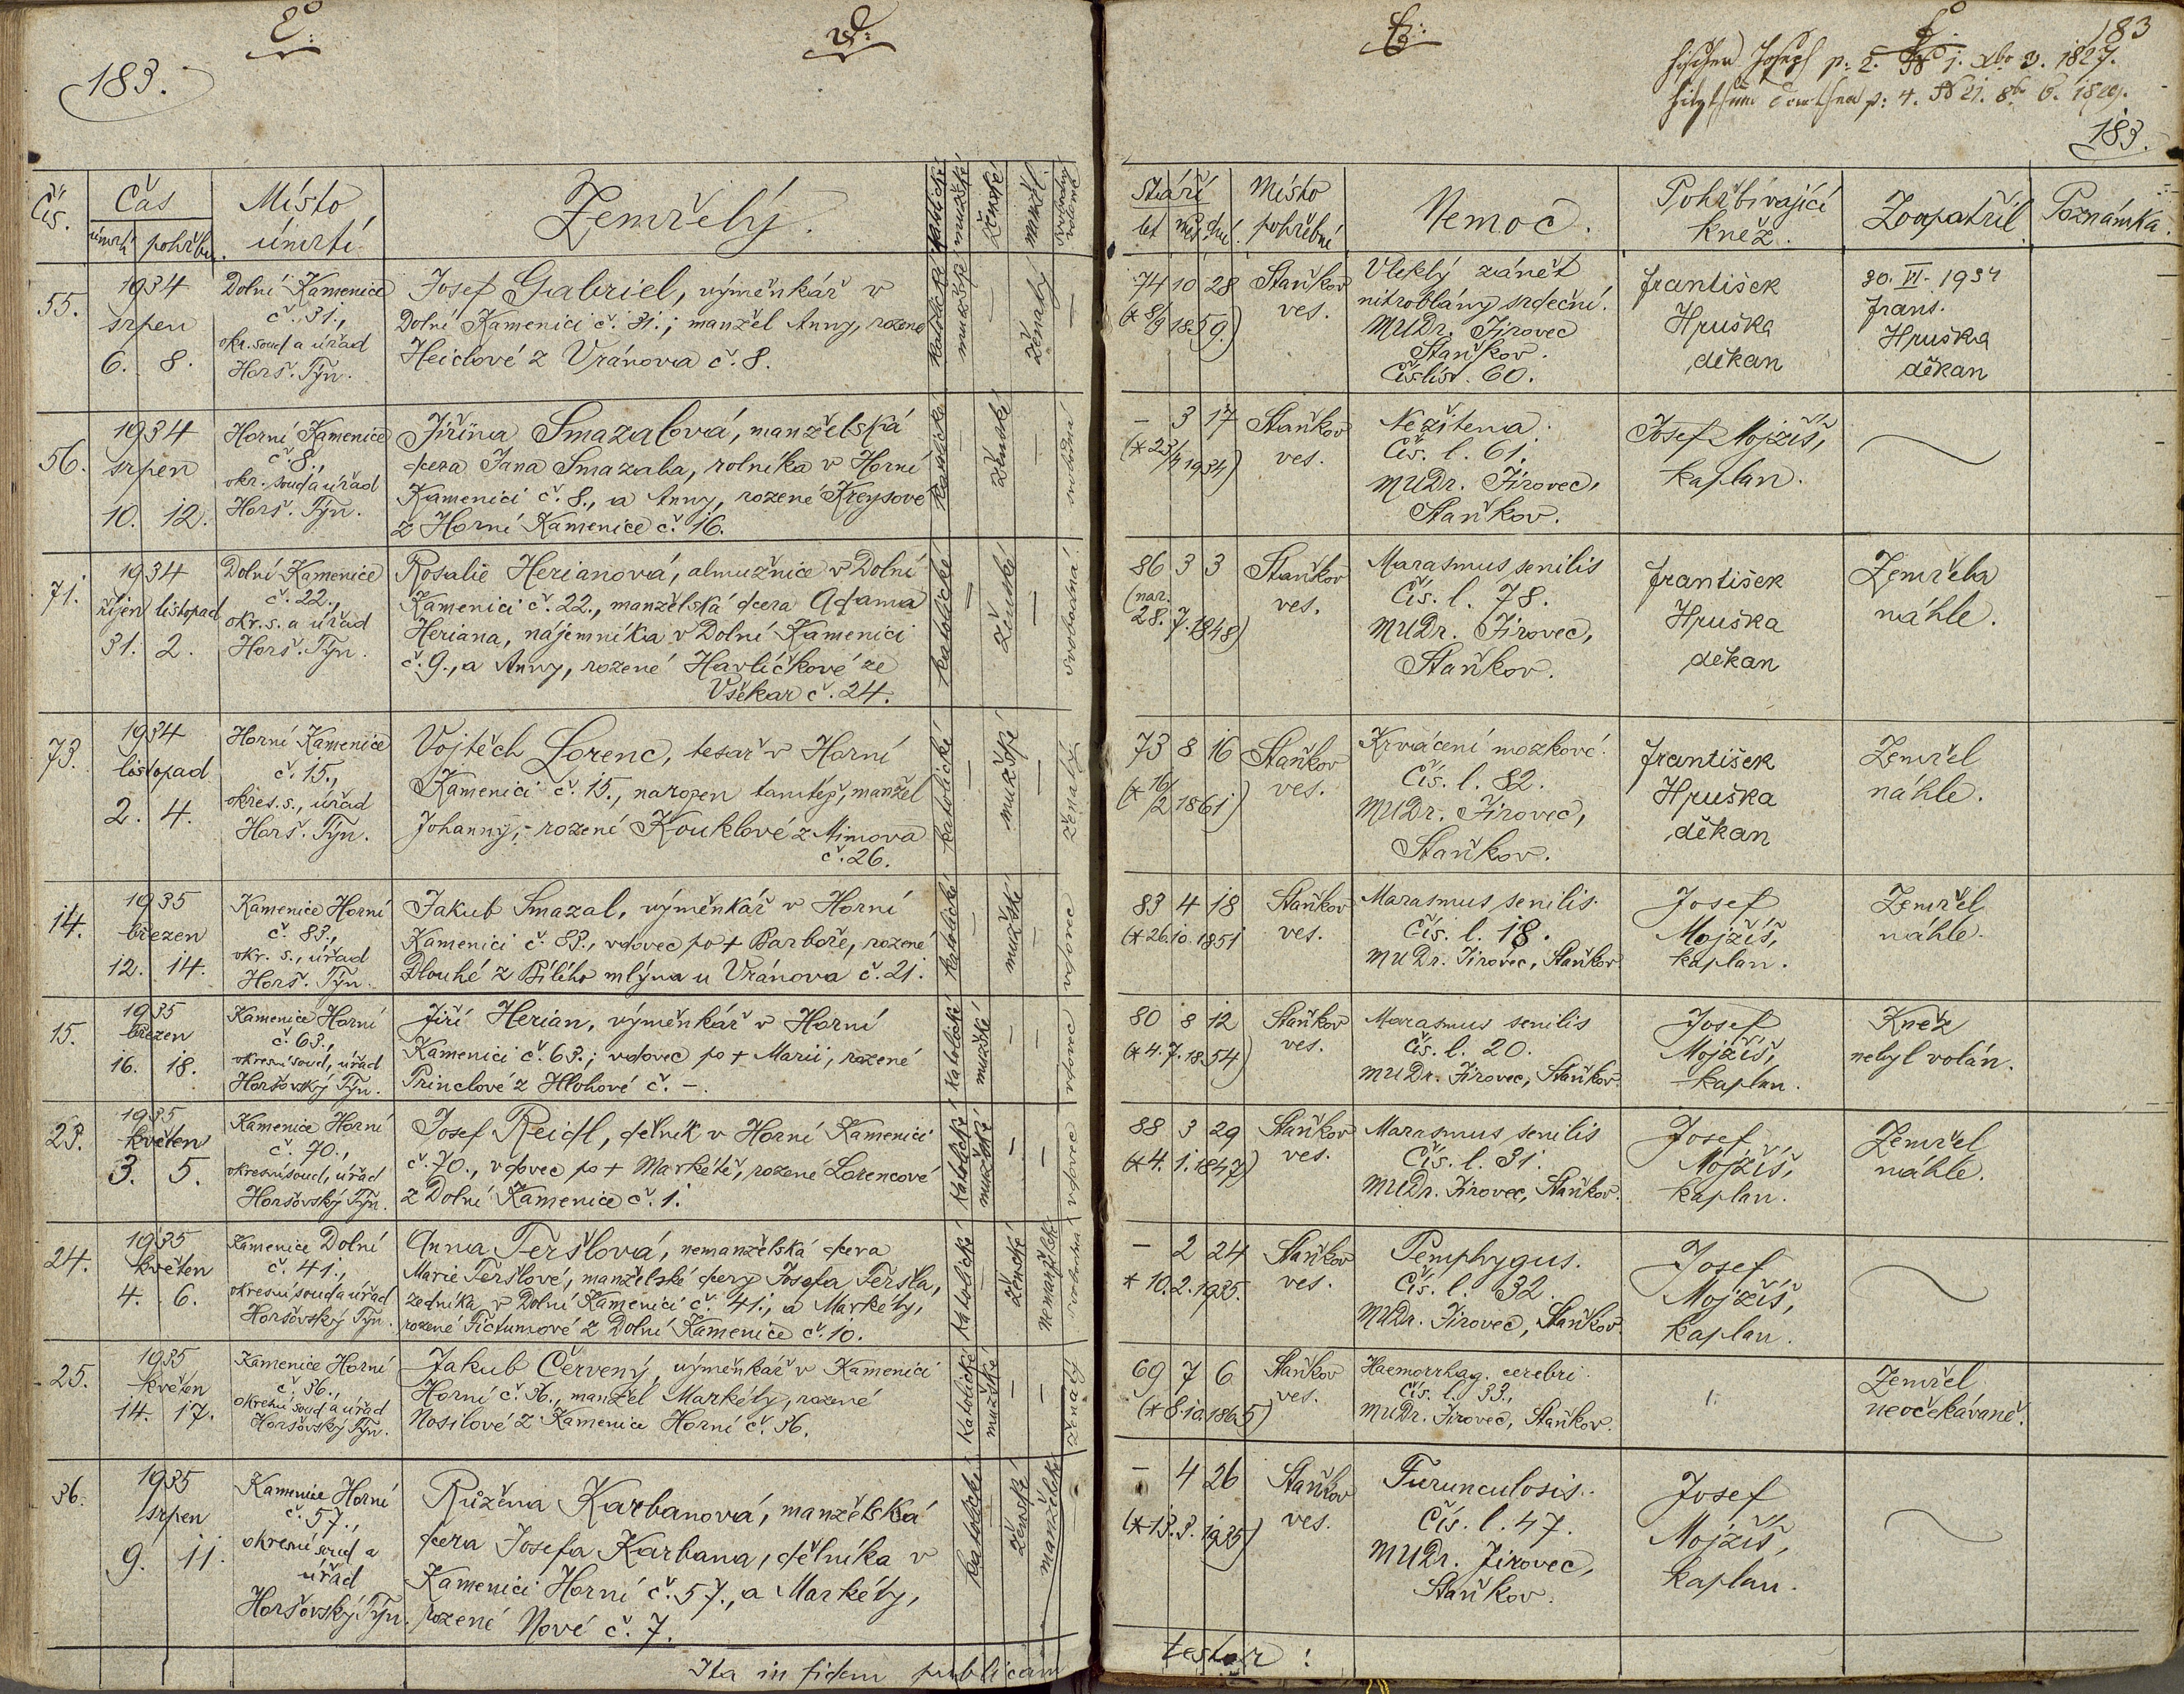 183.
183
Joseph p: 2. N 1. 3. 1827.
p: 4. N 21. 8br 6. 1829.
183.
Čís. Čas Místo úmrtí Zemřelý. katolické mužské ženské manžel. svobodný vdova
úmrtí pohřbu
Stáří Místo pohřební Nemoc. Pohřbívající kněz. Zaopatřil Poznámka.
let měs. dní
55. 1934 srpen 6. 8.
Dolní Kamenice
č. 31.,
okr. soud a úřad
Horš. Týn.
Josef Gabriel, výměnkář v
Dolní Kamenici č. 31.; manžel Anny, rozené
Heidlové z Vránova č. 8.
katolické mužské — ženatý —
74 10 28
(* 8/9 1859)
Staňkov
ves.
Vleklý zánět
nitroblány srdeční.
MUDr. Jírovec
Staňkov.
Čís. líst. 60.
František
Hruška
děkan
30. VI. 1934
Frant.
Hruška
děkan
56. 1934 srpen 10. 12.
Horní Kamenice
č. 8,
okr. soud a úřad
Horš. Týn.
Jiřina Smazalová, manželská
dcera Jana Smazala, rolníka v Horní
Kamenici č. 8., a Anny, rozené Kreysové
z Horní Kamenice č. 16.
katolické ženské svobodná
— 3 17
(* 23/4 1934)
Staňkov
ves.
Nezžitena.
Čís. l. 61.
MUDr. Jírovec,
Staňkov.
Josef Mojžíš,
kaplan.
71. 1934 říjen listopad 31. 2.
Dolní Kamenice
č. 22.,
okr. s. a úřad
Horš. Týn.
Rosalie Herianová, almužnice v Dolní
Kamenici č. 22., manželská dcera Adama
Heriana, nájemníka v Dolní Kamenici
č. 9., a Anny, rozené Havlíčkové ze
Všekar č. 24.
katolické — ženské — svobodná
86 3 3
(nar.
28. 7. 1848)
Staňkov
ves.
Marasmus senilis
Čís. l. 78.
MUDr. Jírovec,
Staňkov.
František
Hruška
děkan
Zemřela
náhle.
73. 1934 listopad 2. 4.
Horní Kamenice
č. 15.,
okres. s., úřad
Horš. Týn.
Vojtěch Lorenc, tesař v Horní
Kamenici č. 15., narozen tamtéž, manžel
Johanny, rozené Kouklové z Mimova
č. 26.
katolické — mužské — ženatý
73 8 16
(* 16/2 1861)
Staňkov
ves.
Krvácení mozkové.
Čís. l. 82.
MUDr. Jírovec,
Staňkov.
František
Hruška
děkan
Zemřel
náhle.
14. 1935 březen 12. 14.
Kamenice Horní
č. 83.,
okr. s., úřad
Horš. Týn.
Jakub Smazal, výměnkář v Horní
Kamenici č. 83., vdovec po + Barboře, rozené
Dlouhé z Bílého mlýna u Vránova č. 21.
katolické — mužské — vdovec
83 4 18
(* 26. 10. 1851
Staňkov
ves.
Marasmus senilis.
Čís. l. 18.
MUDr. Jírovec, Staňkov.
Josef
Mojžíš,
kaplan.
Zemřel
náhle.
15. 1935 březen 16. 18.
Kamenice Horní
č. 63.,
okresní soud, úřad
Horšovský Týn.
Jiří Herian, výměnkář v Horní
Kamenici č. 63.; vdovec po + Marii, rozené
Princlové z Hlohové č. —.
katolické mužské — — vdovec
80 8 12
(* 4. 7. 1854)
Staňkov
ves.
Marasmus senilis
Čís. l. 20.
MUDr. Jírovec, Staňkov.
Josef
Mojžíš,
kaplan.
Kněz
nebyl volán.
23. 1935 květen 3. 5.
Kamenice Horní
č. 70.,
okresní soud, úřad
Horšovský Týn.
Josef Reidl, dělník v Horní Kamenici
č. 70., vdovec po + Markétě, rozené Lorencové
z Dolní Kamenice č. 1.
katolické mužské — — vdovec
88 3 29
(* 4. 1. 1847)
Staňkov
ves.
Marasmus senilis
Čís. l. 31.
MUDr. Jírovec, Staňkov.
Josef
Mojžíš,
kaplan.
Zemřel
náhle.
24. 1935 květen 4. 6.
Kamenice Dolní
č. 41.,
okresní soud a úřad
Horšovský Týn.
Anna Teršlová, nemanželská dcera
Marie Teršlové, manželské dcery Josefa Teršla,
zedníka v Dolní Kamenici č. 41., a Markéty,
rozené Fictumové z Dolní Kamenice č. 10.
katolické — ženské nemanželské svobodná
— 2 24
* 10. 2. 1935.
Staňkov
ves.
Pemphygus.
Čís. l. 32.
MUDr. Jírovec, Staňkov.
Josef
Mojžíš,
kaplan.
25. 1935 květen 14. 17.
Kamenice Horní
č. 36.,
okresní soud a úřad
Horšovský Týn.
Jakub Červený, výměnkář v Kamenici
Horní č. 36., manžel Markéty, rozené
Nosilové z Kamenice Horní č. 36.
katolické mužské — — ženatý
69 7 6
(* 8. 10. 1865)
Staňkov
ves.
Haemorrhag. cerebri.
Čís. l. 33.,
MUDr. Jírovec, Staňkov.
Zemřel
neočekávaně.
36. 1935 srpen 9. 11.
Kamenice Horní
č. 57.,
okresní soud a
úřad
Horšovský Týn.
Růžena Karbanová, manželská
dcera Josefa Karbana, dělníka v
Kamenici Horní č. 57., a Markéty,
rozené Nové č. 7.
katolické ženské manželské —
— 4 26
(* 13. 3. 1935)
Staňkov
ves.
Furunculosis.
Čís. l. 47.
MUDr. Jírovec,
Staňkov.
Josef
Mojžíš,
kaplan.
Ita in fidem publicam
testor :